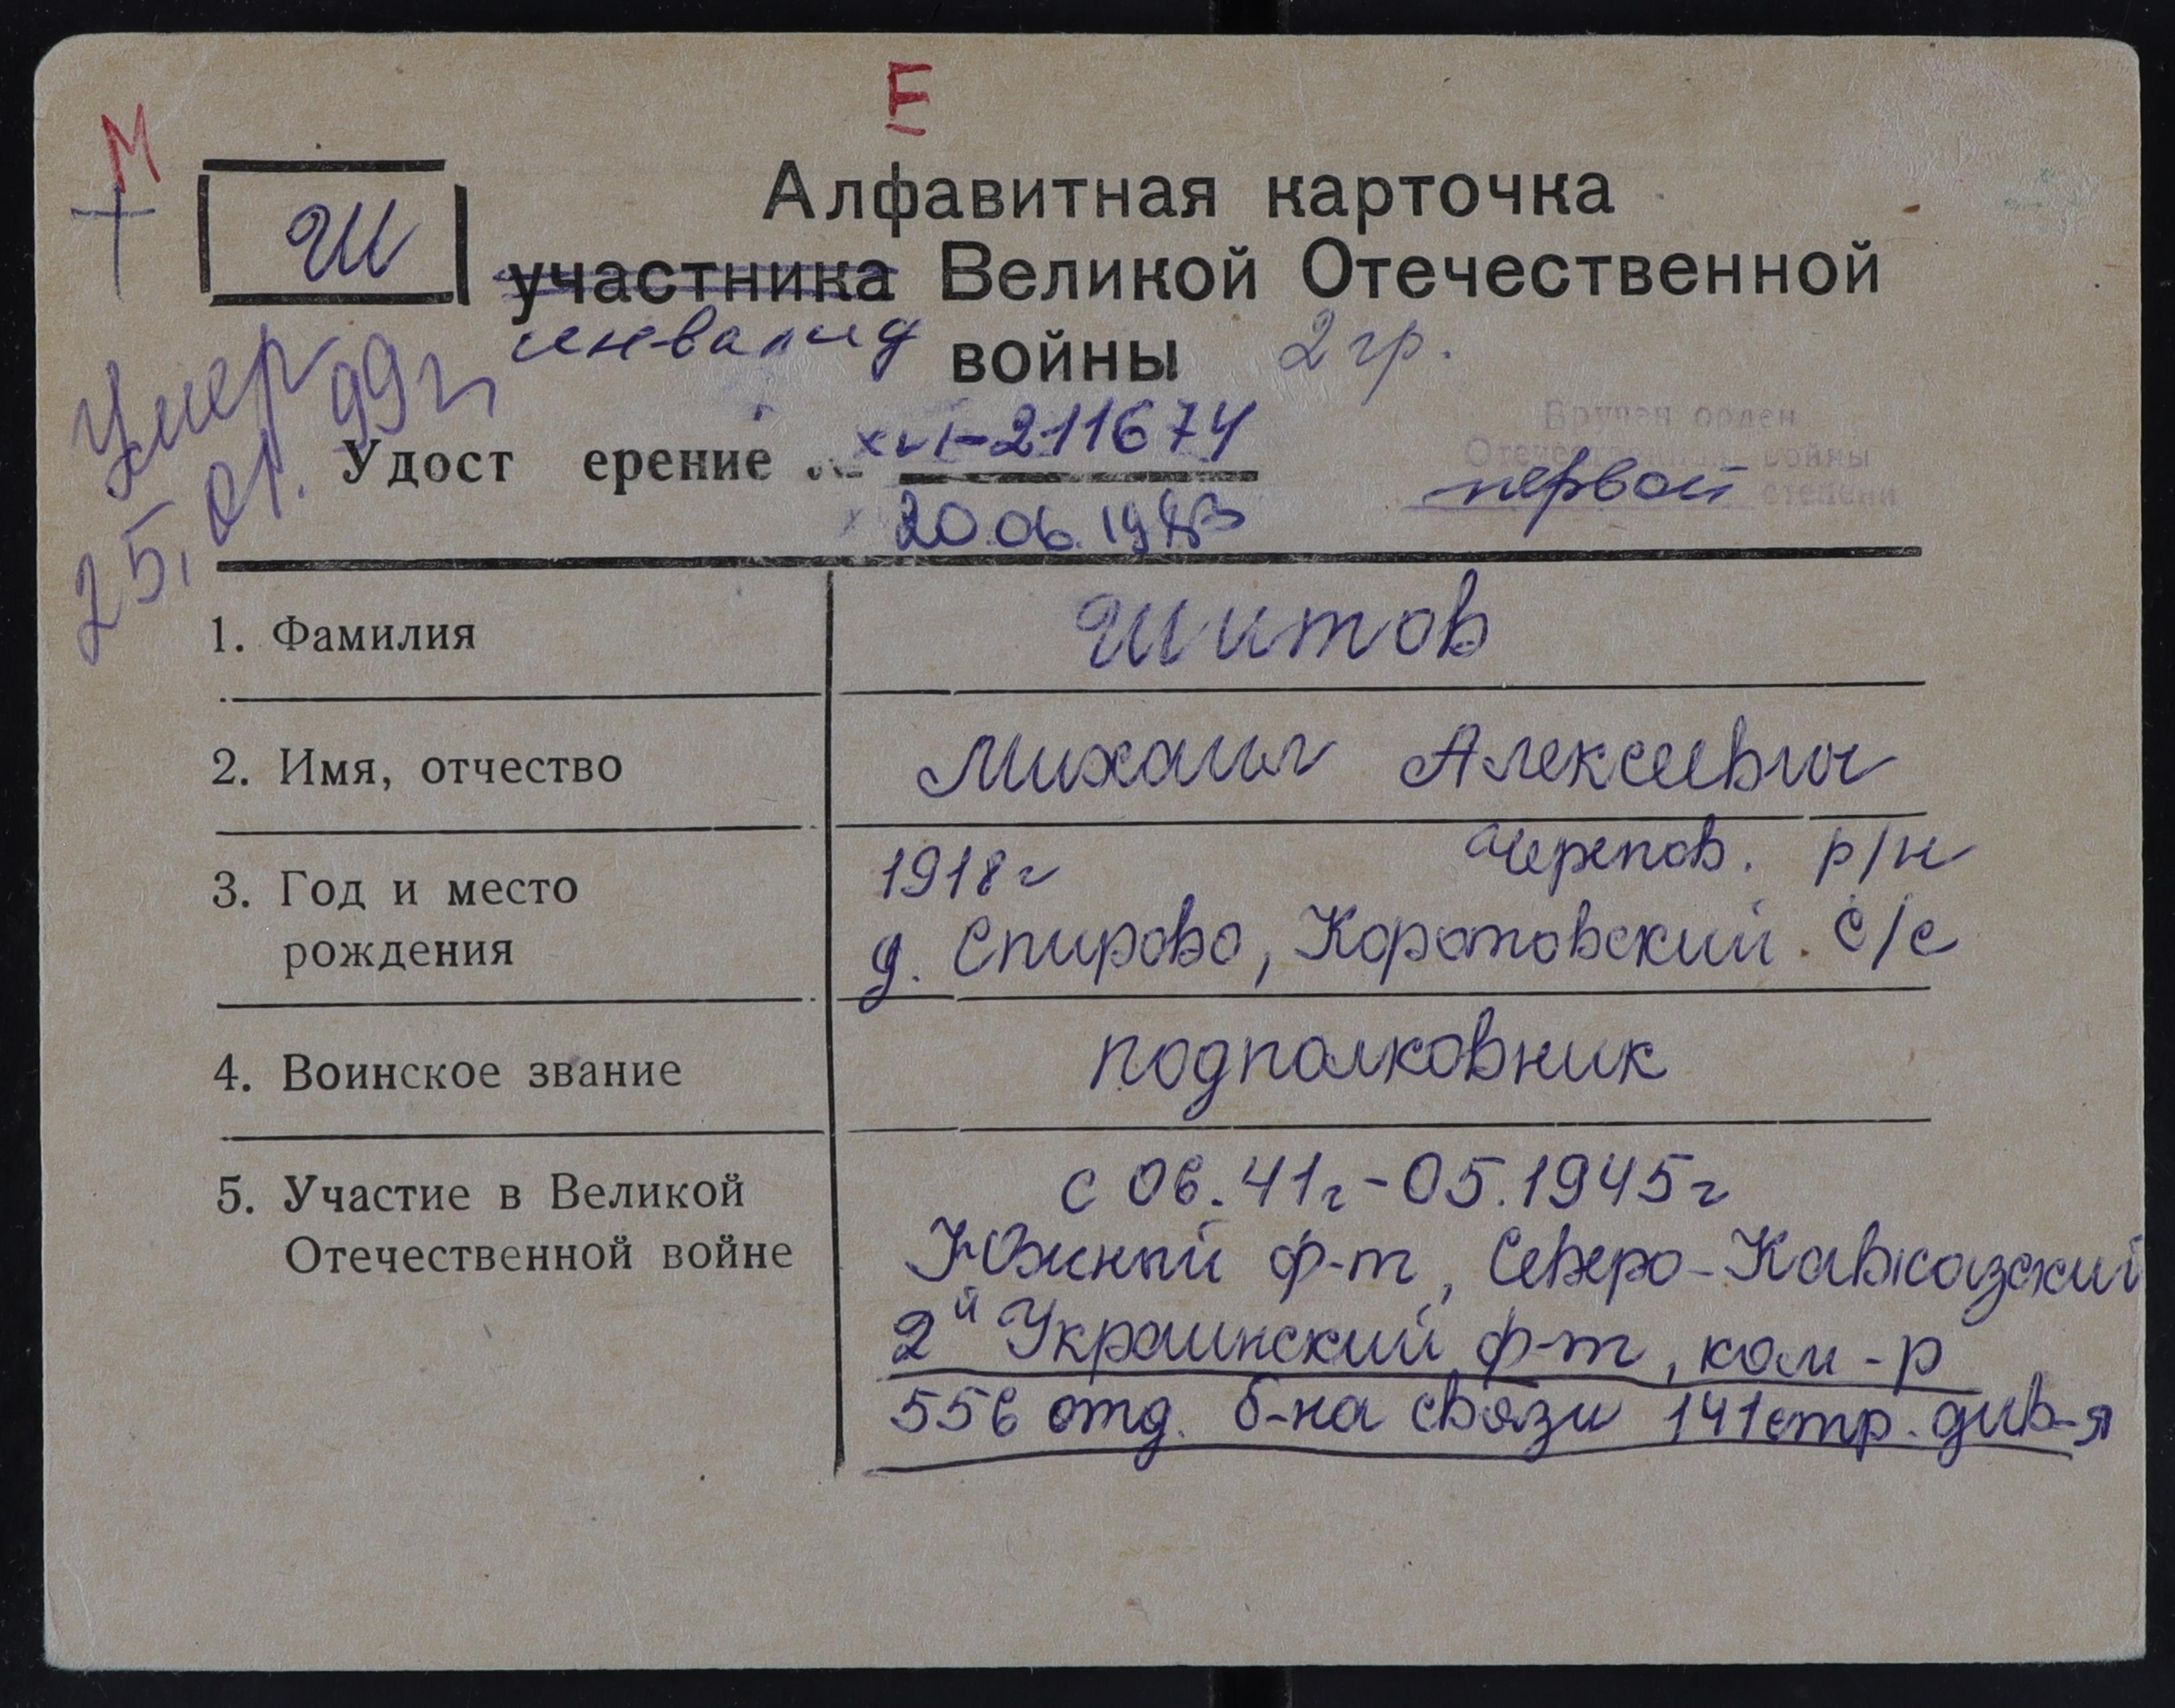 Е
М
Ш
Алфавитная карточка
участника Великой Отечественной
инвалид войны 2 гр.
Умер
25.01.99г
Удост ерение № XVI-211674
20.06.
Вручен орден
Отечественной войны
первой степени
1. Фамилия Шитов
2. Имя, отчество Михаил Алексеевич
3. Год и место 1918г Черепов. р/н
рождения д. Спирово, Коротовский с/с
4. Воинское звание подполковник
5. Участие в Великой с 06.41г-05.1945г
Отечественной войне Южный ф-т, Северо-Кавказский
2й Украинский ф-т, ком-р
556 отд. б-на связи 141 стр. див-я